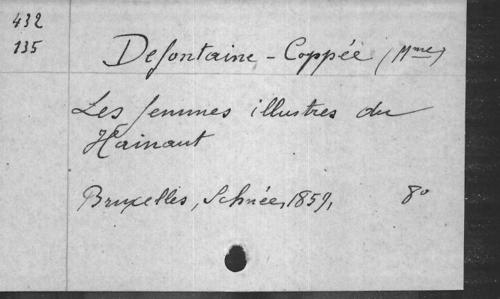 432
135
Defontaine - Coppée (Mme)
Les femmes illustres du
Hainaut
Bruxelles, Schnée, 1859, 8°